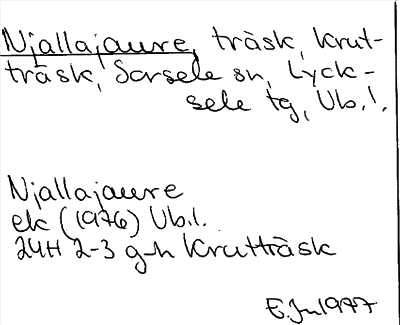 Njallajaure, träsk, Krut-
träsk, Sorsele sn, Lyck-
sele tg, Vb.l.
Njallajaure
ek (1976) Vb.l.
24H 2-3 g-h Krutträsk
1977